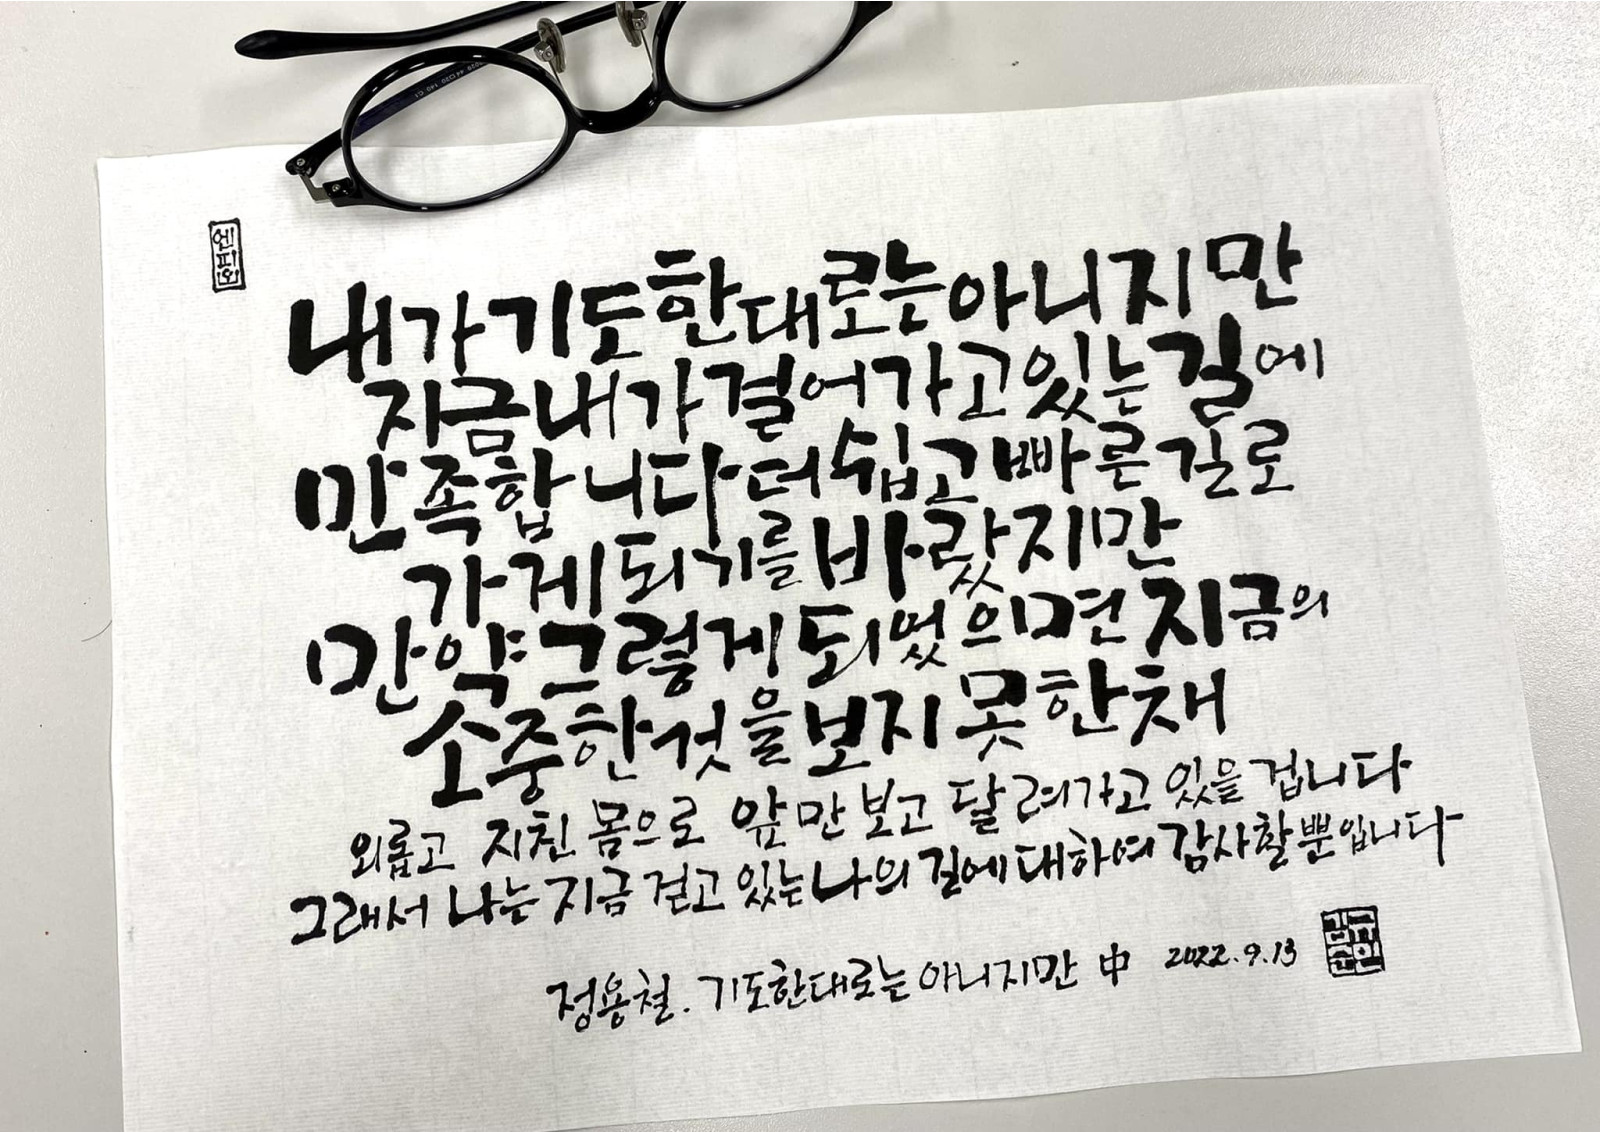 엔피오
내가 기도한대로는 아니지만
지금 내가 걸어가고 있는 길에
만족합니다 더 쉽고 빠른 길로
가게되기를 바랐지만
만약 그렇게 되었으면 지금의
소중한 것을 보지 못한채
외롭고 지친 몸으로 앞만 보고 달려가고 있을 겁니다
그래서 나는 지금 걷고 있는 나의 길에 대하여 감사할 뿐입니다
정용철. 기도한대로는 아니지만 中 2022.9.13